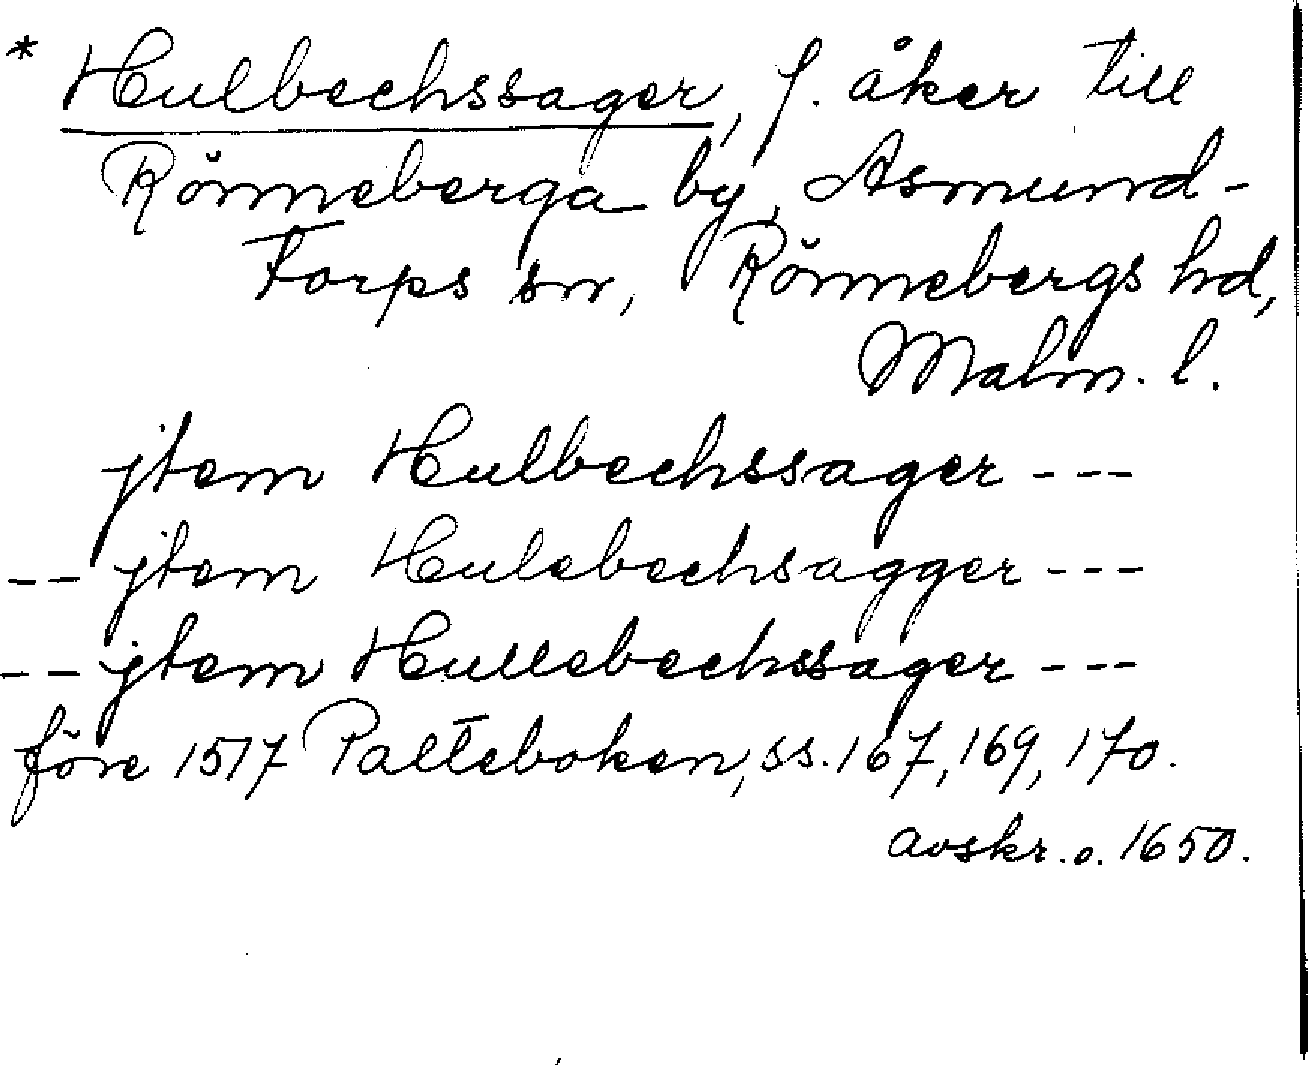 * Hulbechssager, f. åker till
Rönneberga by, Asmund-
torps sn, Rönnebergs hd,
Malm. l.
jtem Hulbechssager ---
-- jtem Hulebechsagger ---
-- jtem Hullebechssager ---
före 1517 Palteboken, ss. 167, 169, 170.
avskr. o. 1650.